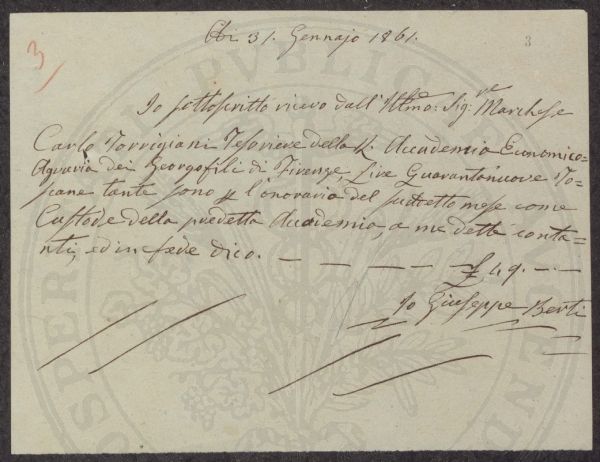 3
Adi 31. Gennajo 1861.
3
Io sottoscritto ricevo dall' Illmo: Sig:re Marchese
Carlo Torrigiani Tesoriere della R. Accademia Economico=
Agraria dei Georgofili di Firenze Lire Quarantanuove To=
scane tante sono p l'onorario del suddetto mese come
Custode della predetta Accademia, a me dette conta=
nti, ed in fede dico. — — — — £ 49. — —
Io Giuseppe Berti
PVBLICAE
PROSPERITATI